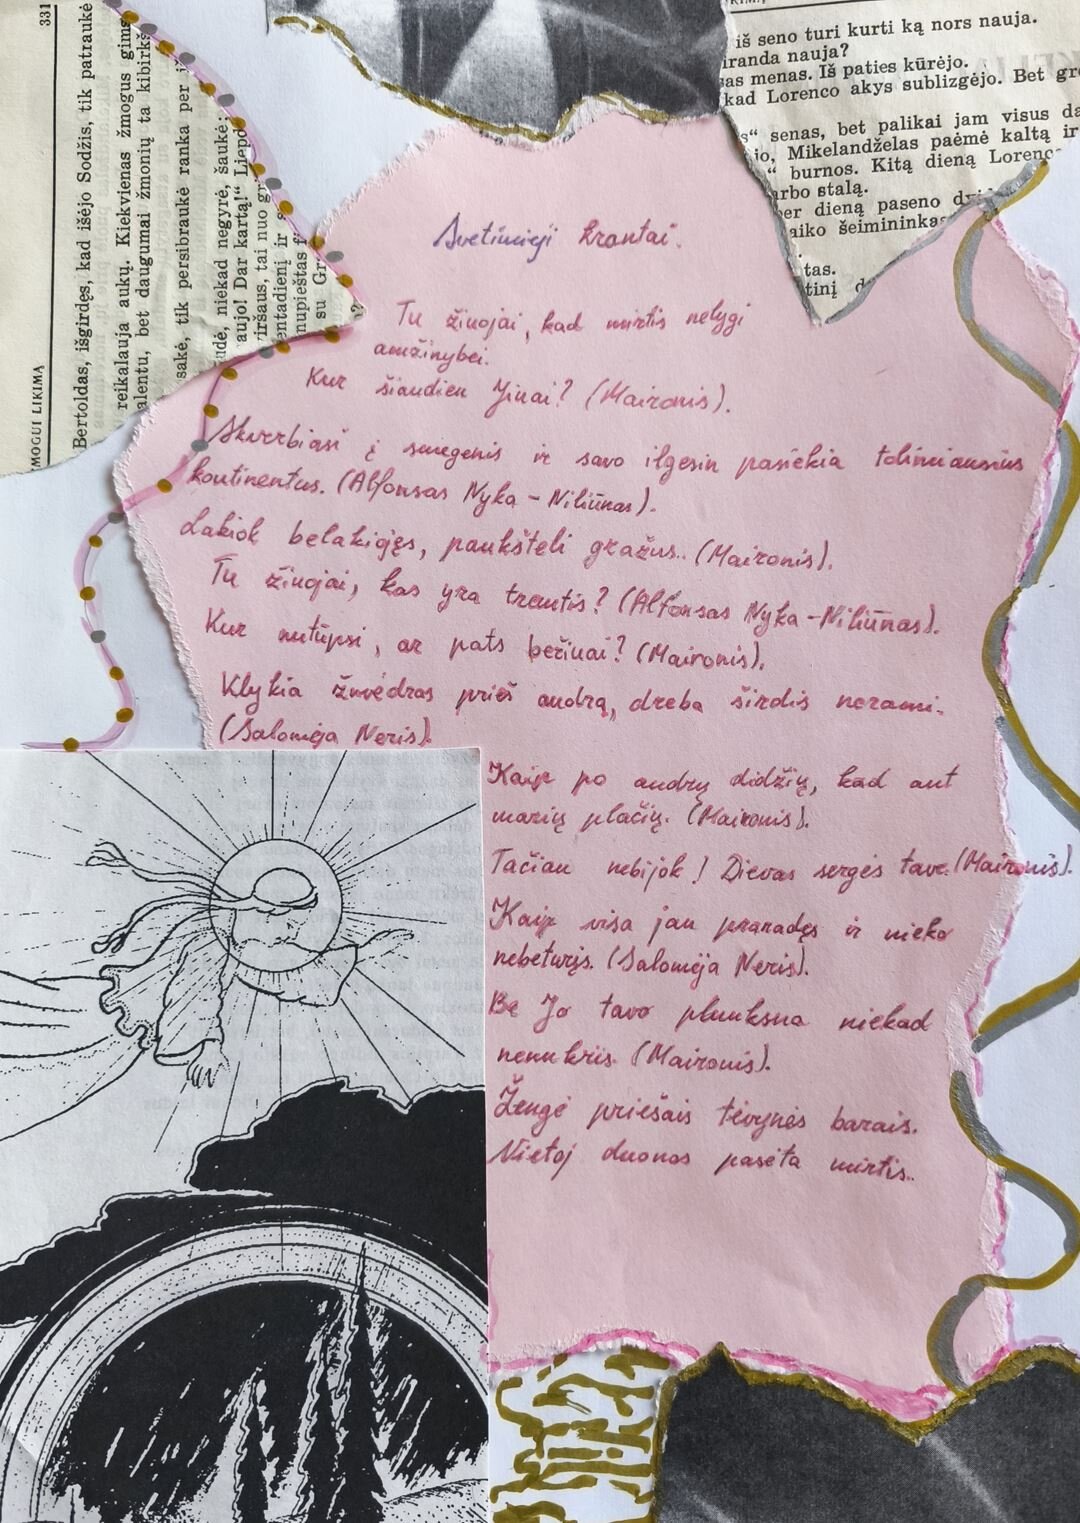 331
MOGUI LIKIMĄ
Bertoldas, išgirdęs, kad išėjo Sodžis, tik patraukė
reikalauja aukų. Kiekvienas žmogus gims
alentu, bet daugumai žmonių ta kibirkš
sakė, tik persibraukė ranka per
udė, niekad negyrė, šaukė:
aujo! Dar kartą!“ Liepd
viršaus, tai nuo
entadienį ir
nupieštas
su
iš seno turi kurti ką nors nauja.
iranda nauja?
as menas. Iš paties kūrėjo.
kad Lorenco akys sublizgėjo. Bet
s“ senas, bet palikai jam visus
jo, Mikelandželas paėmė kaltą ir
“ burnos. Kitą dieną Lorenc
arbo stalą.
per dieną paseno
aiko šeimininkas
tas.
tinį
Svetimieji krantai.
Tu žinojai, kad mirtis nelygi
amžinybei.
Kur šiandien Jinai? (Maironis).
Skverbiasi į smegenis ir savo ilgesin pasiekia tolimiausius
kontinentus. (Alfonsas Nyka - Niliūnas).
Lakiok belakiojęs, paukšteli gražus.. (Maironis).
Tu žinojai, kas yra tremtis? (Alfonsas Nyka - Niliūnas).
Kur nutūpsi, ar pats bežinai? (Maironis).
Klykia žuvėdros prieš audrą, dreba širdis nerami.
(Salomėja Neris).
Kaip po audrų didžių, kad ant
marių plačių. (Maironis).
Tačiau nebijok! Dievas sergės tave. (Maironis).
Kaip visa jau praradęs ir nieko
nebeturįs. (Salomėja Neris).
Be Jo tavo plunksna niekad
nenukris. (Maironis).
Žengė priešais tėvynės barais.
Vietoj duonos pasėta mirtis..